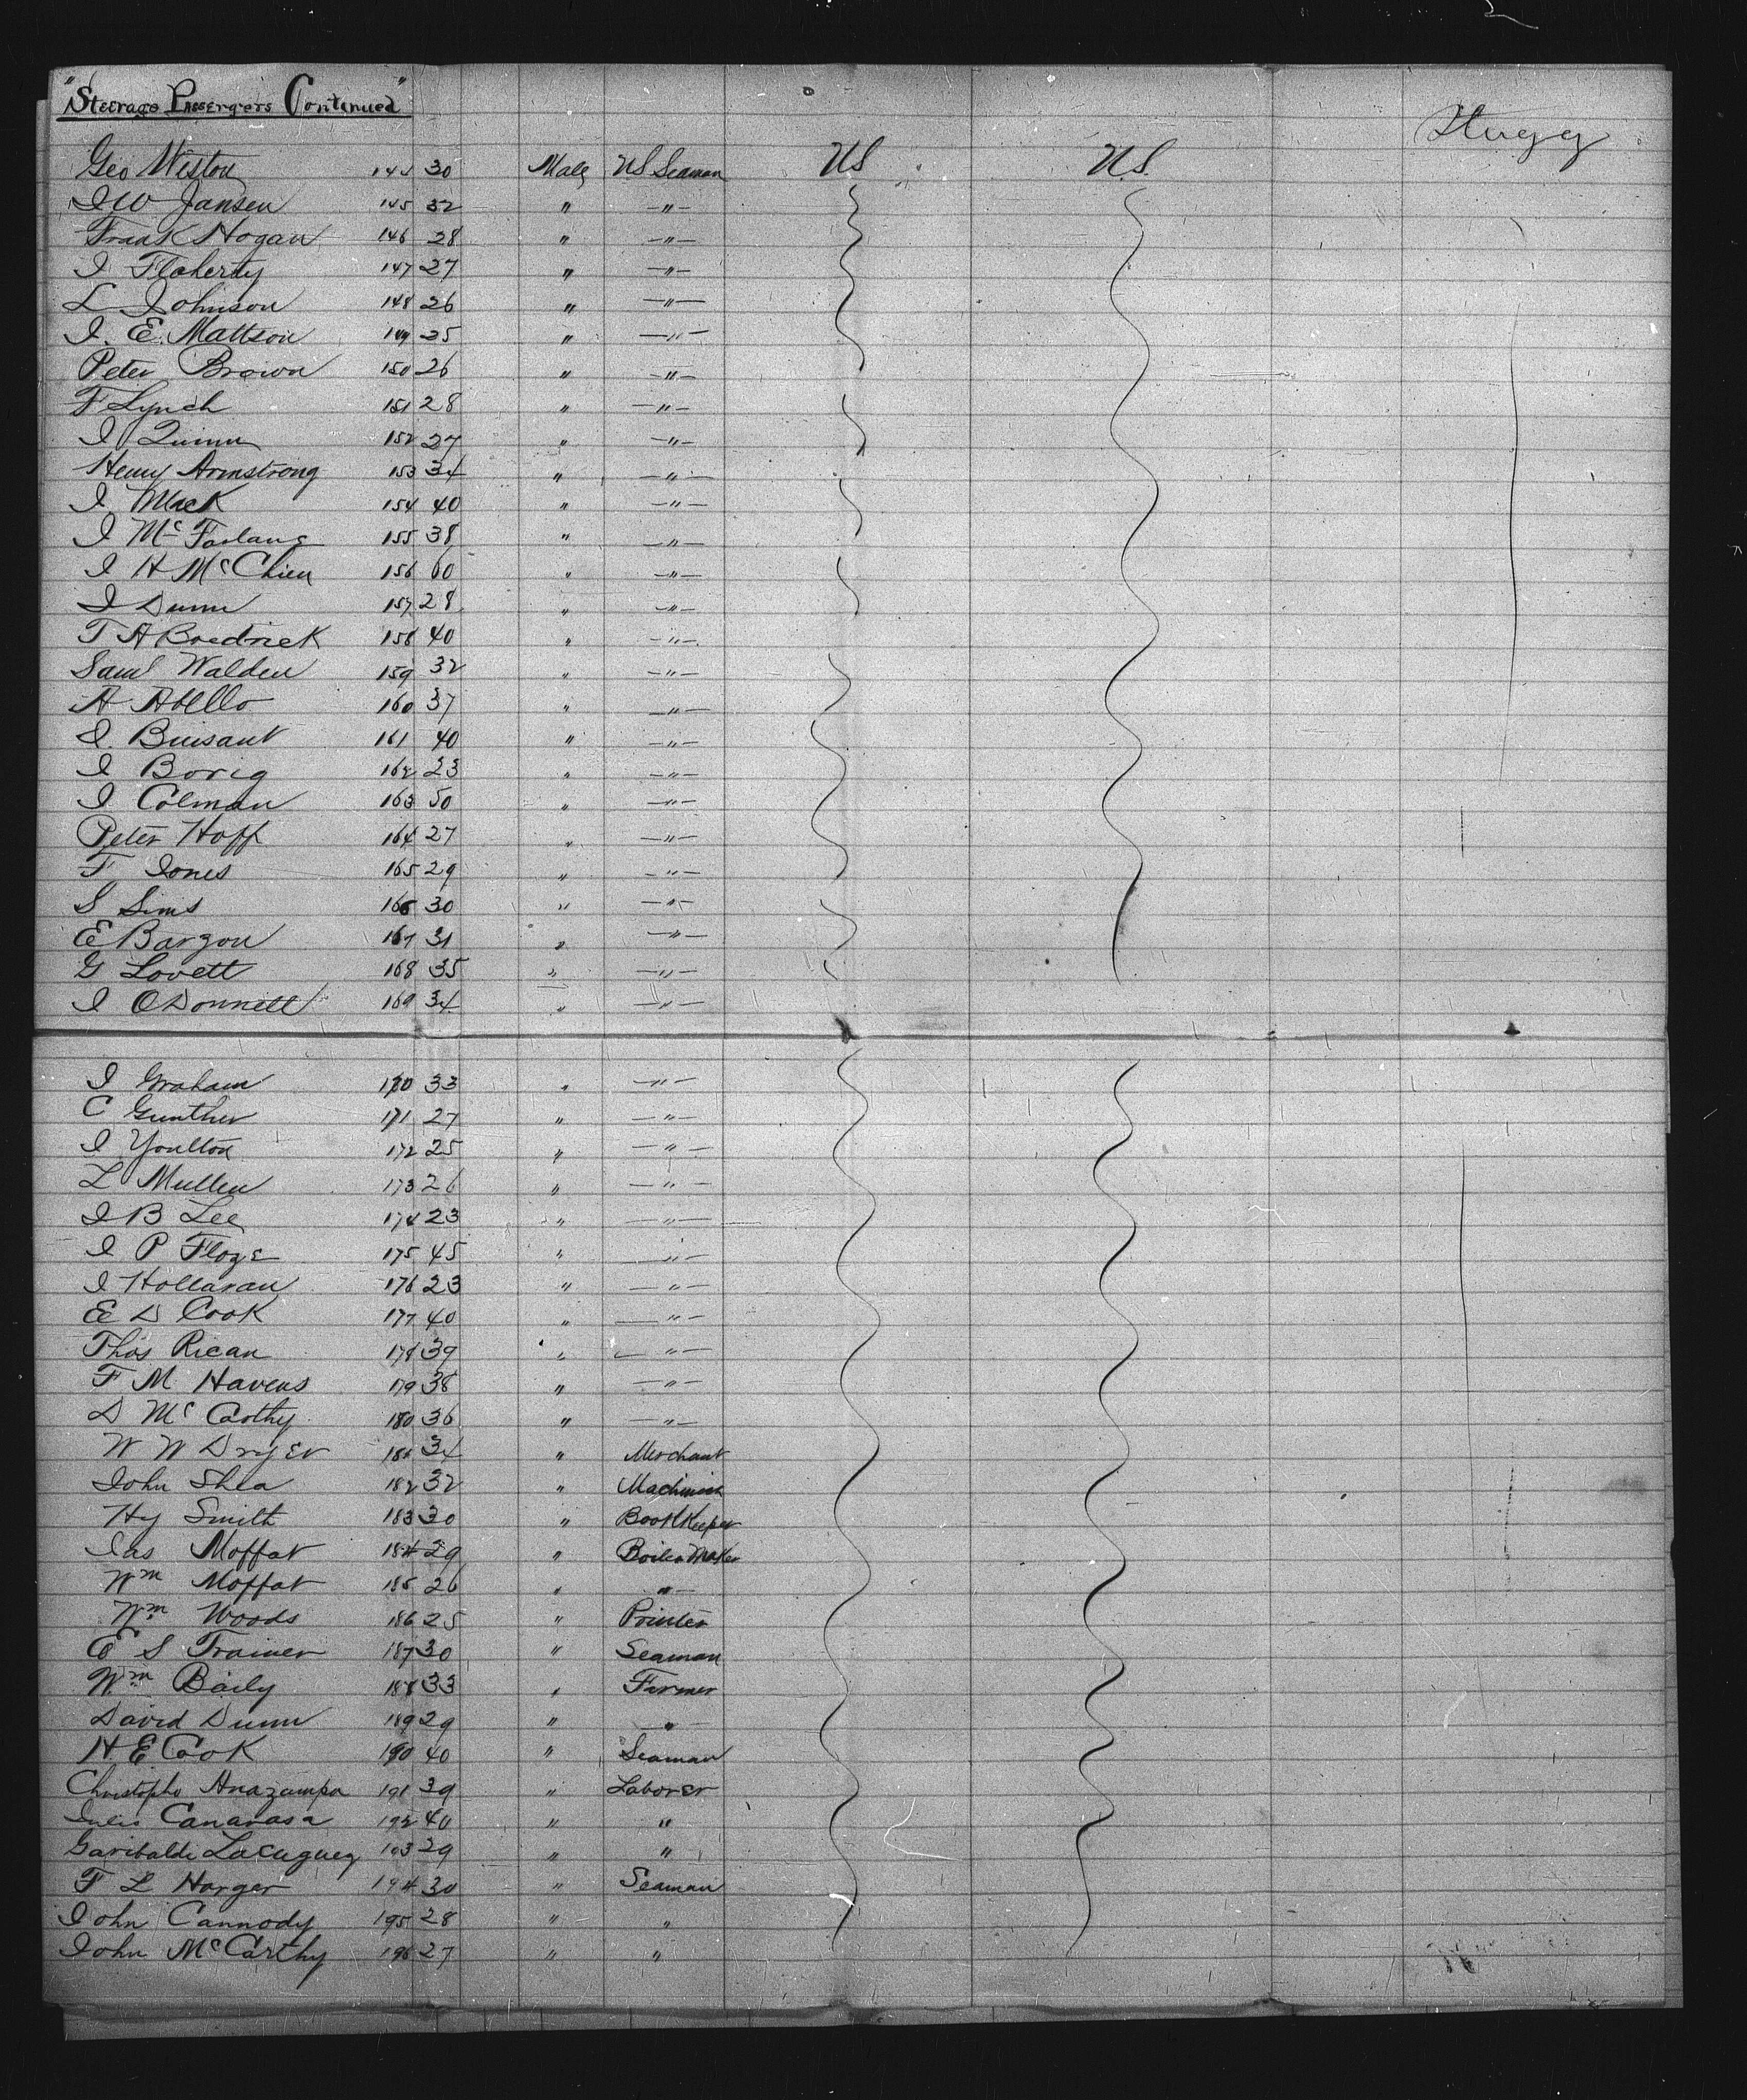 "Steerage Passengers Continued"
Stugg
Geo Weston 144 30 Male US Seaman US U.S.
I W Jansen 145 32 " -"-
Frank Hogan 146 28 " -"-
I Flaherty 147 27 " -"-
L Johnson 148 26 " -"-
I. E. Mattson 149 25 " -"-
Peter Brown 150 26 " -"-
F Lynch 151 28 " -"-
I Quinn 152 27 " -"-
Henry Armstrong 153 34 " -"-
I Mack 154 40 " -"-
I McFarlang 155 38 " -"-
I H McChien 156 60 " -"-
I Dunn 157 28 " -"-
T A Broedrick 158 40 " -"-
Saml Walden 159 32 " -"-
A Abello 160 37 " -"-
I. Buisant 161 40 " -"-
I Borig 162 23 " -"-
I Colman 163 50 " -"-
Peter Hoff 164 27 " -"-
F Jones 165 29 " -"-
S Sims 166 30 " -"-
E Bargon 167 31 " -"-
G Lovett 168 35 " -"-
I ODonnell 169 34 " -"-
I Graham 170 33 " -"-
C Gunther 171 27 " -"-
I Youlton 172 25 " -"-
L Mullen 173 26 " -"-
I B Lee 174 23 " -"-
I P Floze 175 45 " -"-
I Hollaran 176 23 " -"-
E D Cook 177 40 " -"-
Thos Rican 178 39 " -"-
F M Havens 179 38 " -"-
D McCarthy 180 36 " -"-
W W Dryer 181 34 " Merchant
John Shea 182 32 " Machinist
Hy Smith 183 30 " BookKeeper
Jas Moffat 184 29 " Boiler Maker
Wm Moffat 185 26 " "
Wm Woods 186 25 " Printer
E S Trainer 187 30 " Seaman
Wm Baily 188 33 " Farmer
David Dunn 189 29 " "
H. E Cook 190 40 " Seaman
Christopho Anazumpa 191 39 " Laborer
Julis Canavasa 192 40 " "
Garibaldi Lacugueg 193 29 " "
F L Horger 194 30 " Seaman
John Cannody 195 28 " "
John McCarthy 196 27 " "